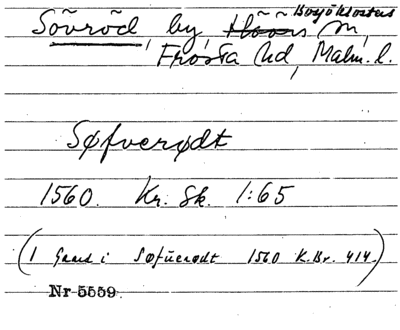 Sõvrõd, by, Bosjöklosters
Hõõrs sn,
Frosta hd, Malm. l.
Søfverødt
1560. Kr. Sk. 1:65
(1 Gaard i Søfuerødt 1560 K.Br. 414.)
Nr 5559.